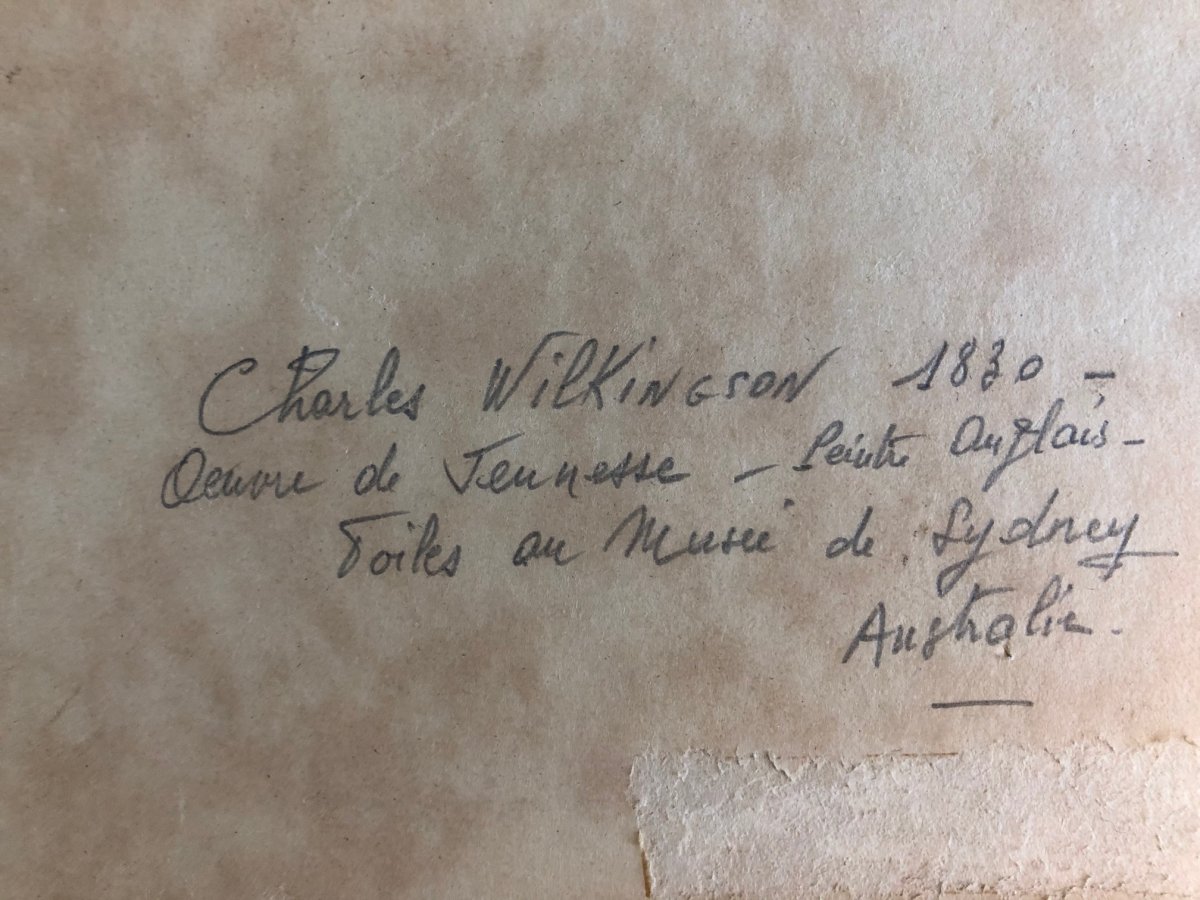 Charles WilKiNGSON 1830 -
Oeuvre de Jeunesse - Peintre Anglais -
Toiles au Musée de Sydney
Australie.